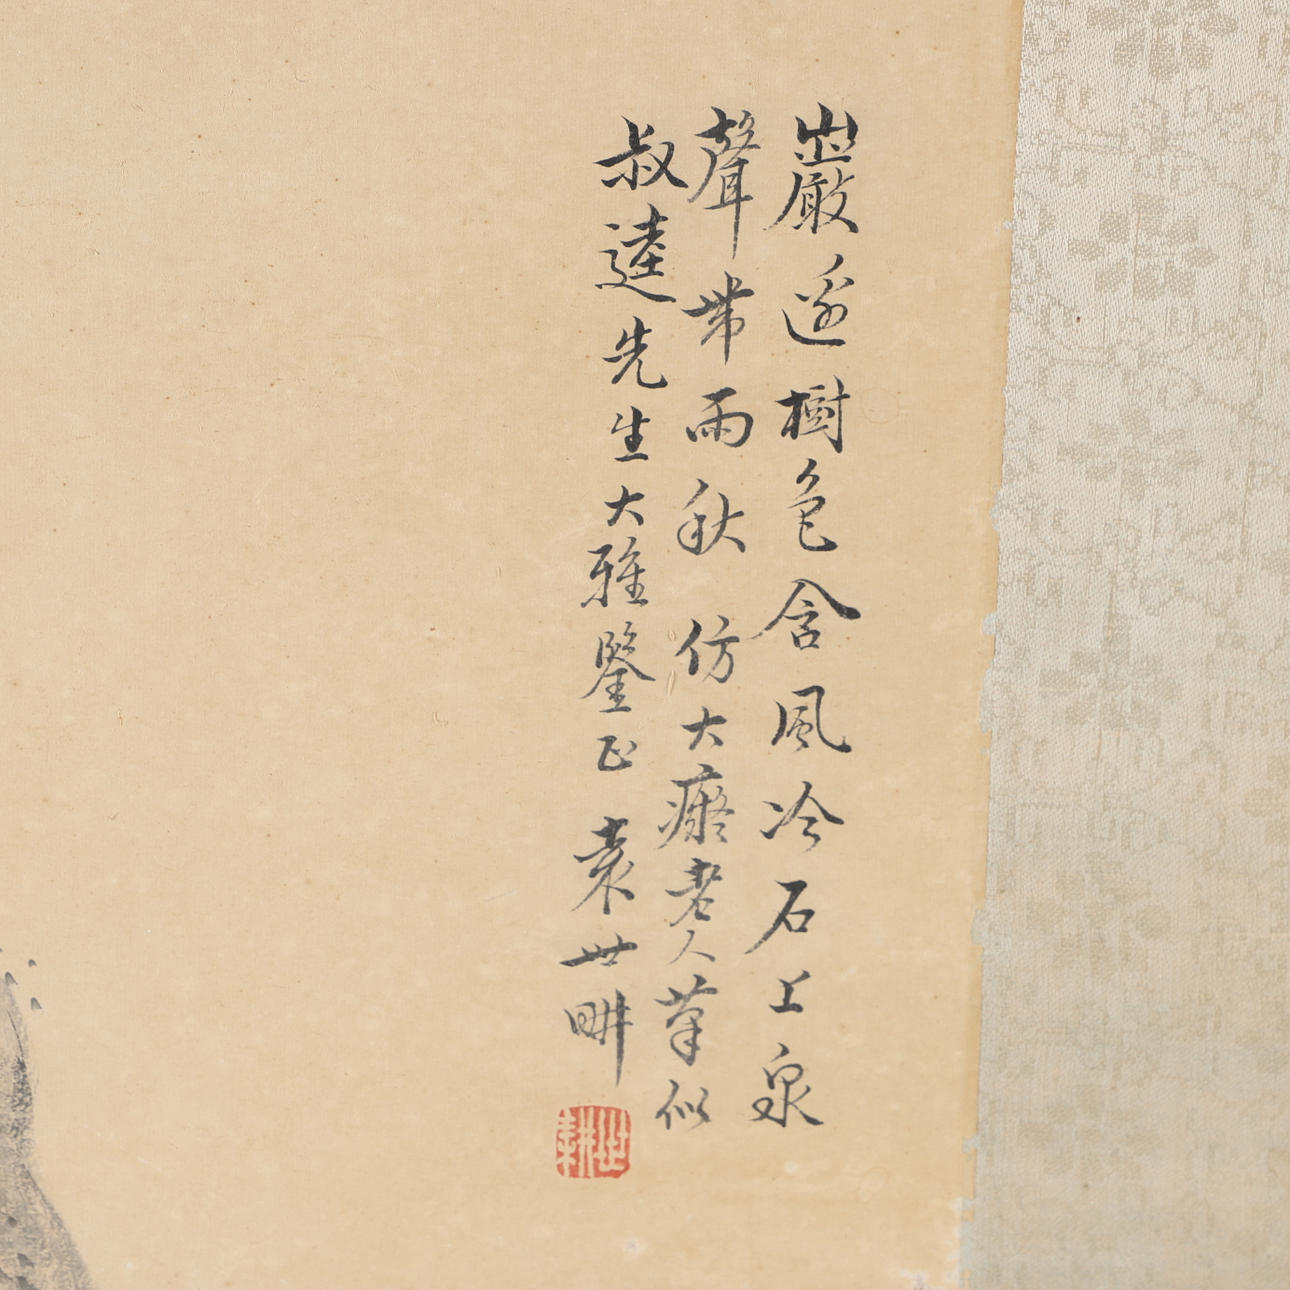 巖邊樹色含風冷石上泉
聲帶雨秋 仿大癡老人筆似
叔達先生大雅鑒正 袁世畊
世耕